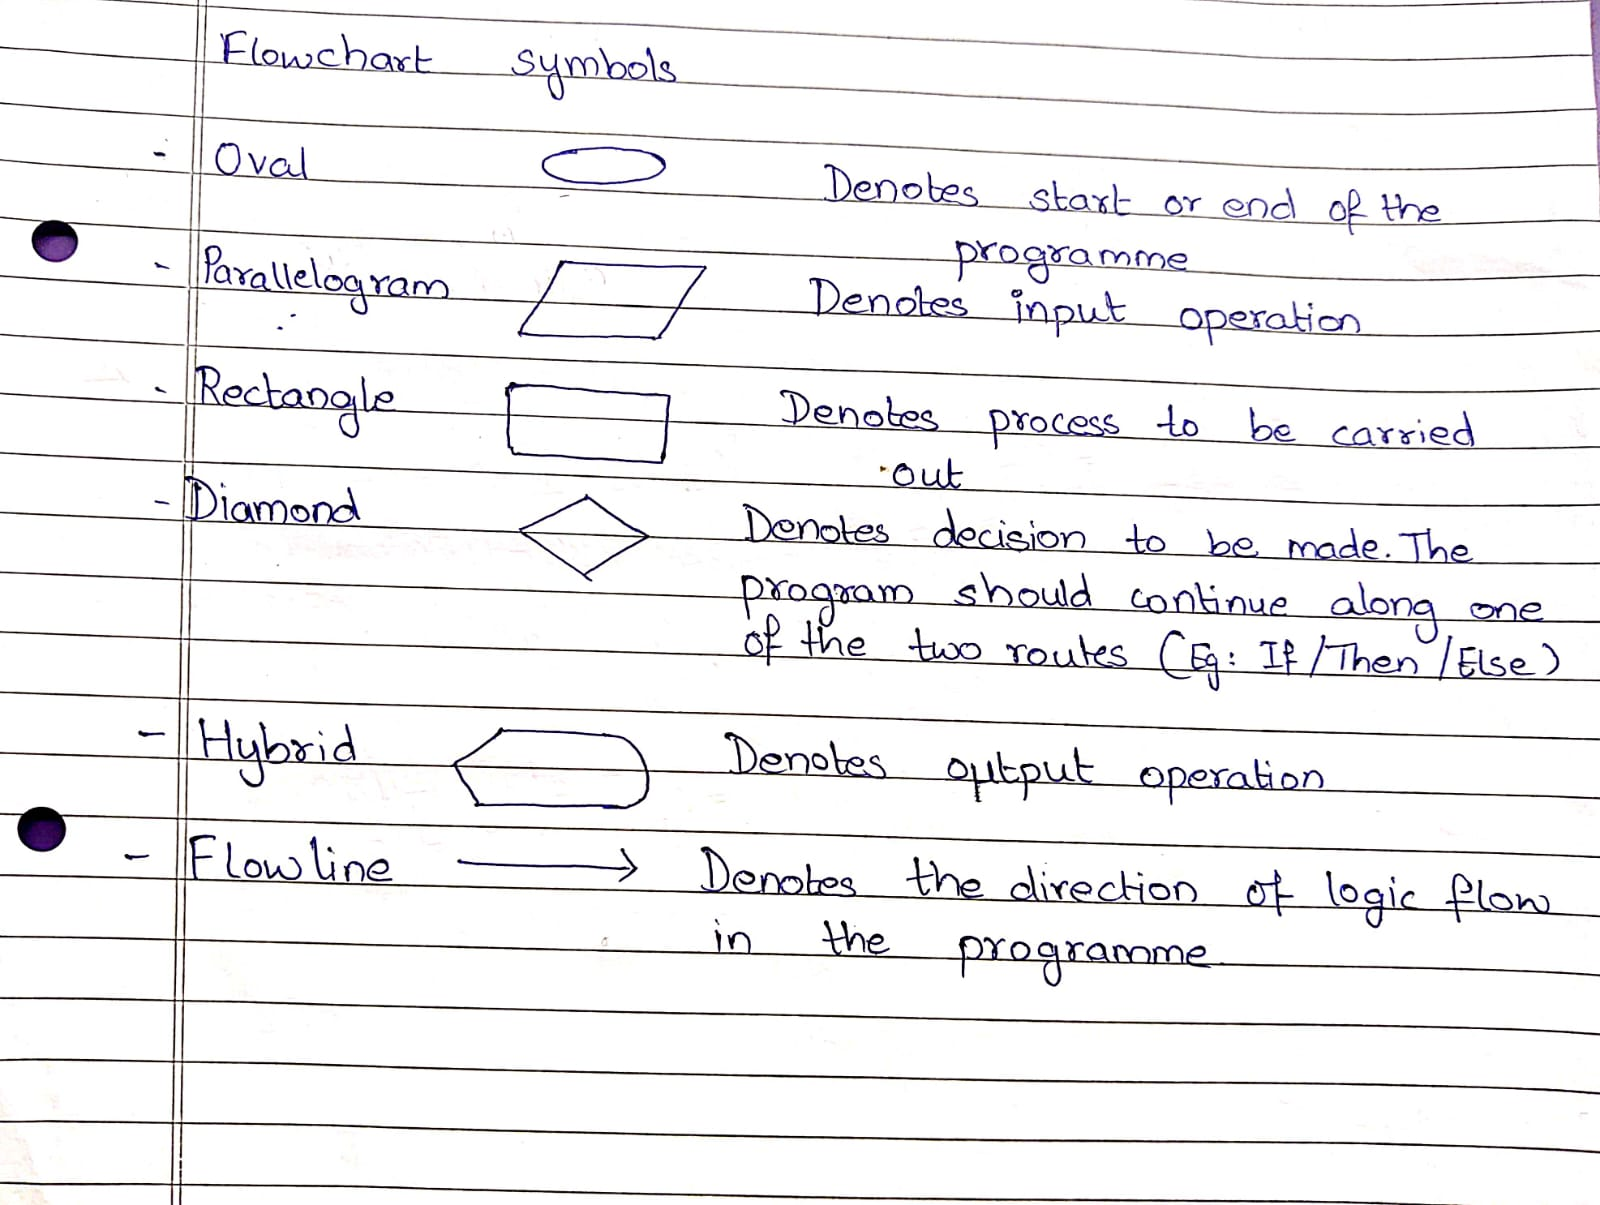 Flowchart symbols
- Oval Denotes start or end of the
programme
- Parallelogram Denotes input operation
- Rectangle Denotes process to be carried
out
- Diamond Denotes decision to be made. The
program should continue along one
of the two routes (Eg: If/Then/Else)
- Hybrid Denotes output operation
- Flowline Denotes the direction of logic flow
in the programme